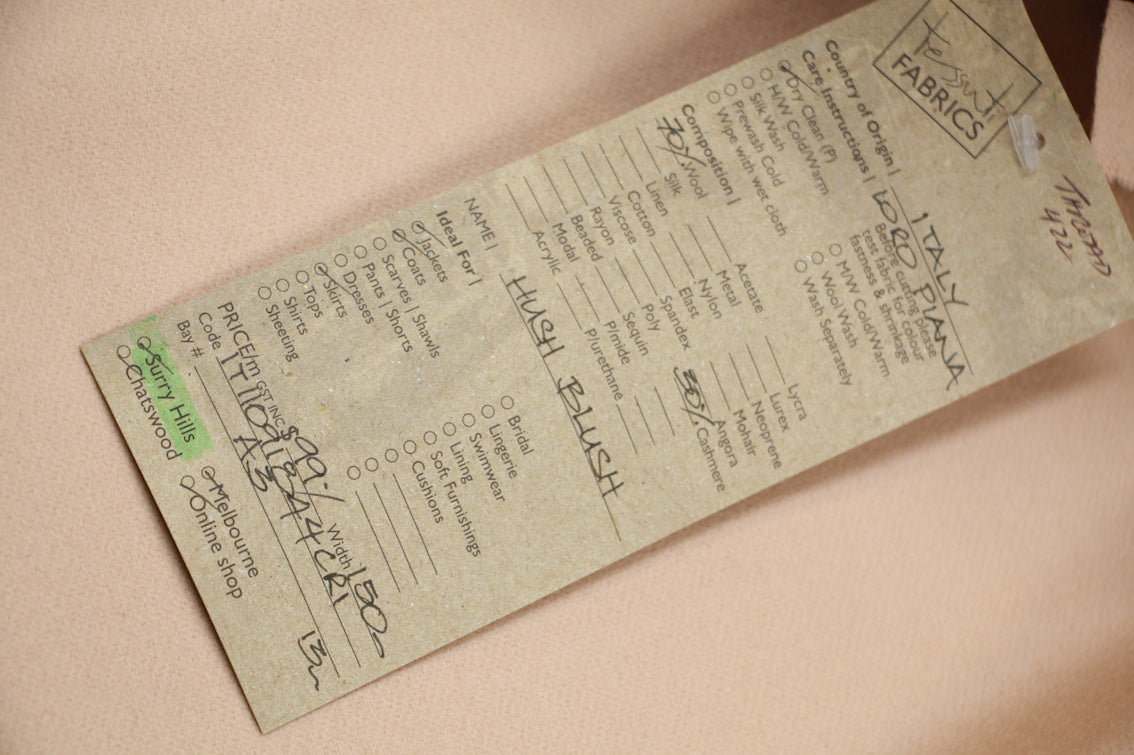 tessuti
FABRICS
THREAD
422
Country of Origin | ITALY
LORO PIANA
Care Instructions |
Before cutting please
test fabric for colour
fastness & shrinkage
Dry Clean (P)
H/W Cold/Warm
Silk Wash
Prewash Cold
Wipe with wet cloth
M/W Cold/Warm
Wool Wash
Wash Separately
Composition |
70% Wool
Silk
Linen
Cotton
Viscose
Rayon
Beaded
Modal
Acrylic
Acetate
Metal
Nylon
Elast
Spandex
Poly
Sequin
P/mide
P/urethane
Lycra
Lurex
Neoprene
Mohair
Angora
30% Cashmere
NAME | HUSH BLUSH
Ideal For |
Jackets
Coats
Scarves | Shawls
Pants | Shorts
Dresses
Skirts
Tops
Shirts
Sheeting
Bridal
Lingerie
Swimwear
Lining
Soft Furnishings
Cushions
PRICE/m GST INC $99.- Width 150
Code
Bay # A3 13m
Surry Hills
Chatswood
Melbourne
Online shop